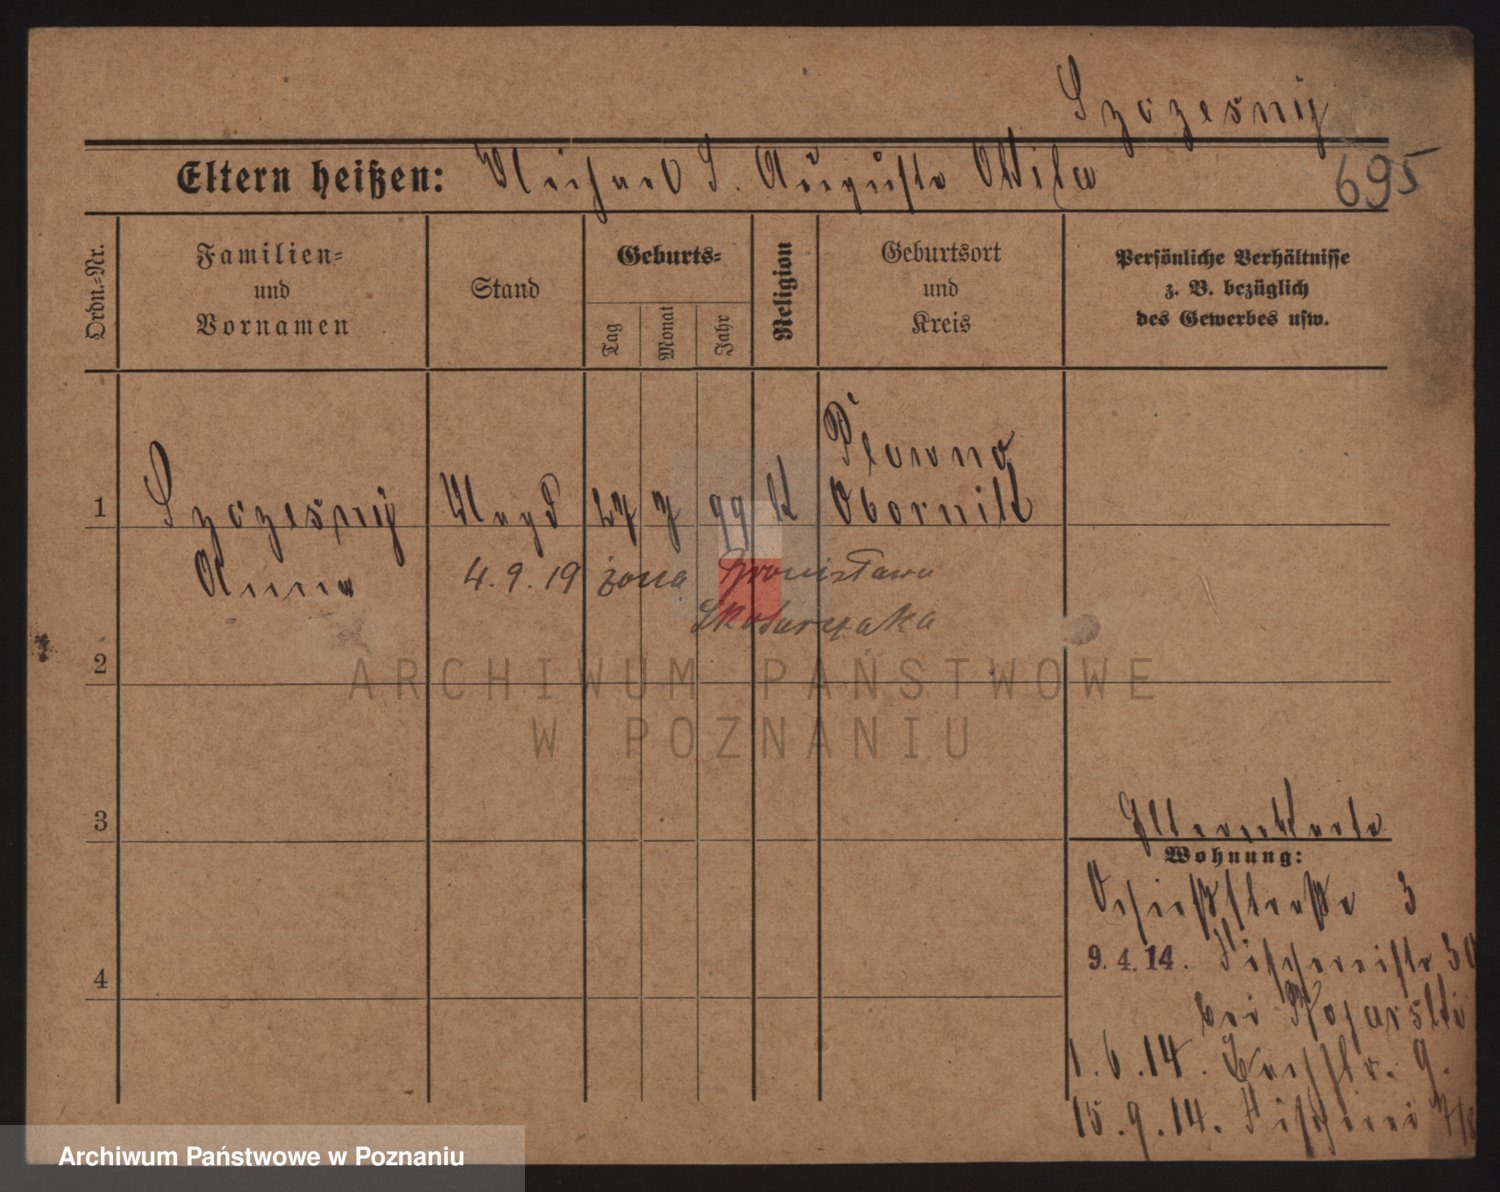 Szczesny
695
Eltern heißen: Michael S. Auguste Wila
Ordn.-Nr.
Familien-
und
Vornamen
Stand
Geburts-
Tag
Monat
Jahr
Religion
Geburtsort
und
Kreis
Persönliche Verhältnisse
z. B. bezüglich
des Gewerbes usw.
1
Szczesny Magd 27 7 99 K
Plowno
Obornik
Anna
4.9.19 żona Bronisława
2
ARCHIWUM PAŃSTWOWE
W POZNANIU
3
Elternkarte
Wohnung:
3
4
9.4.14. Fischereistr 30
bei
1.6.14. 9.
15.9.14. Fischerei
Archiwum Państwowe w Poznaniu